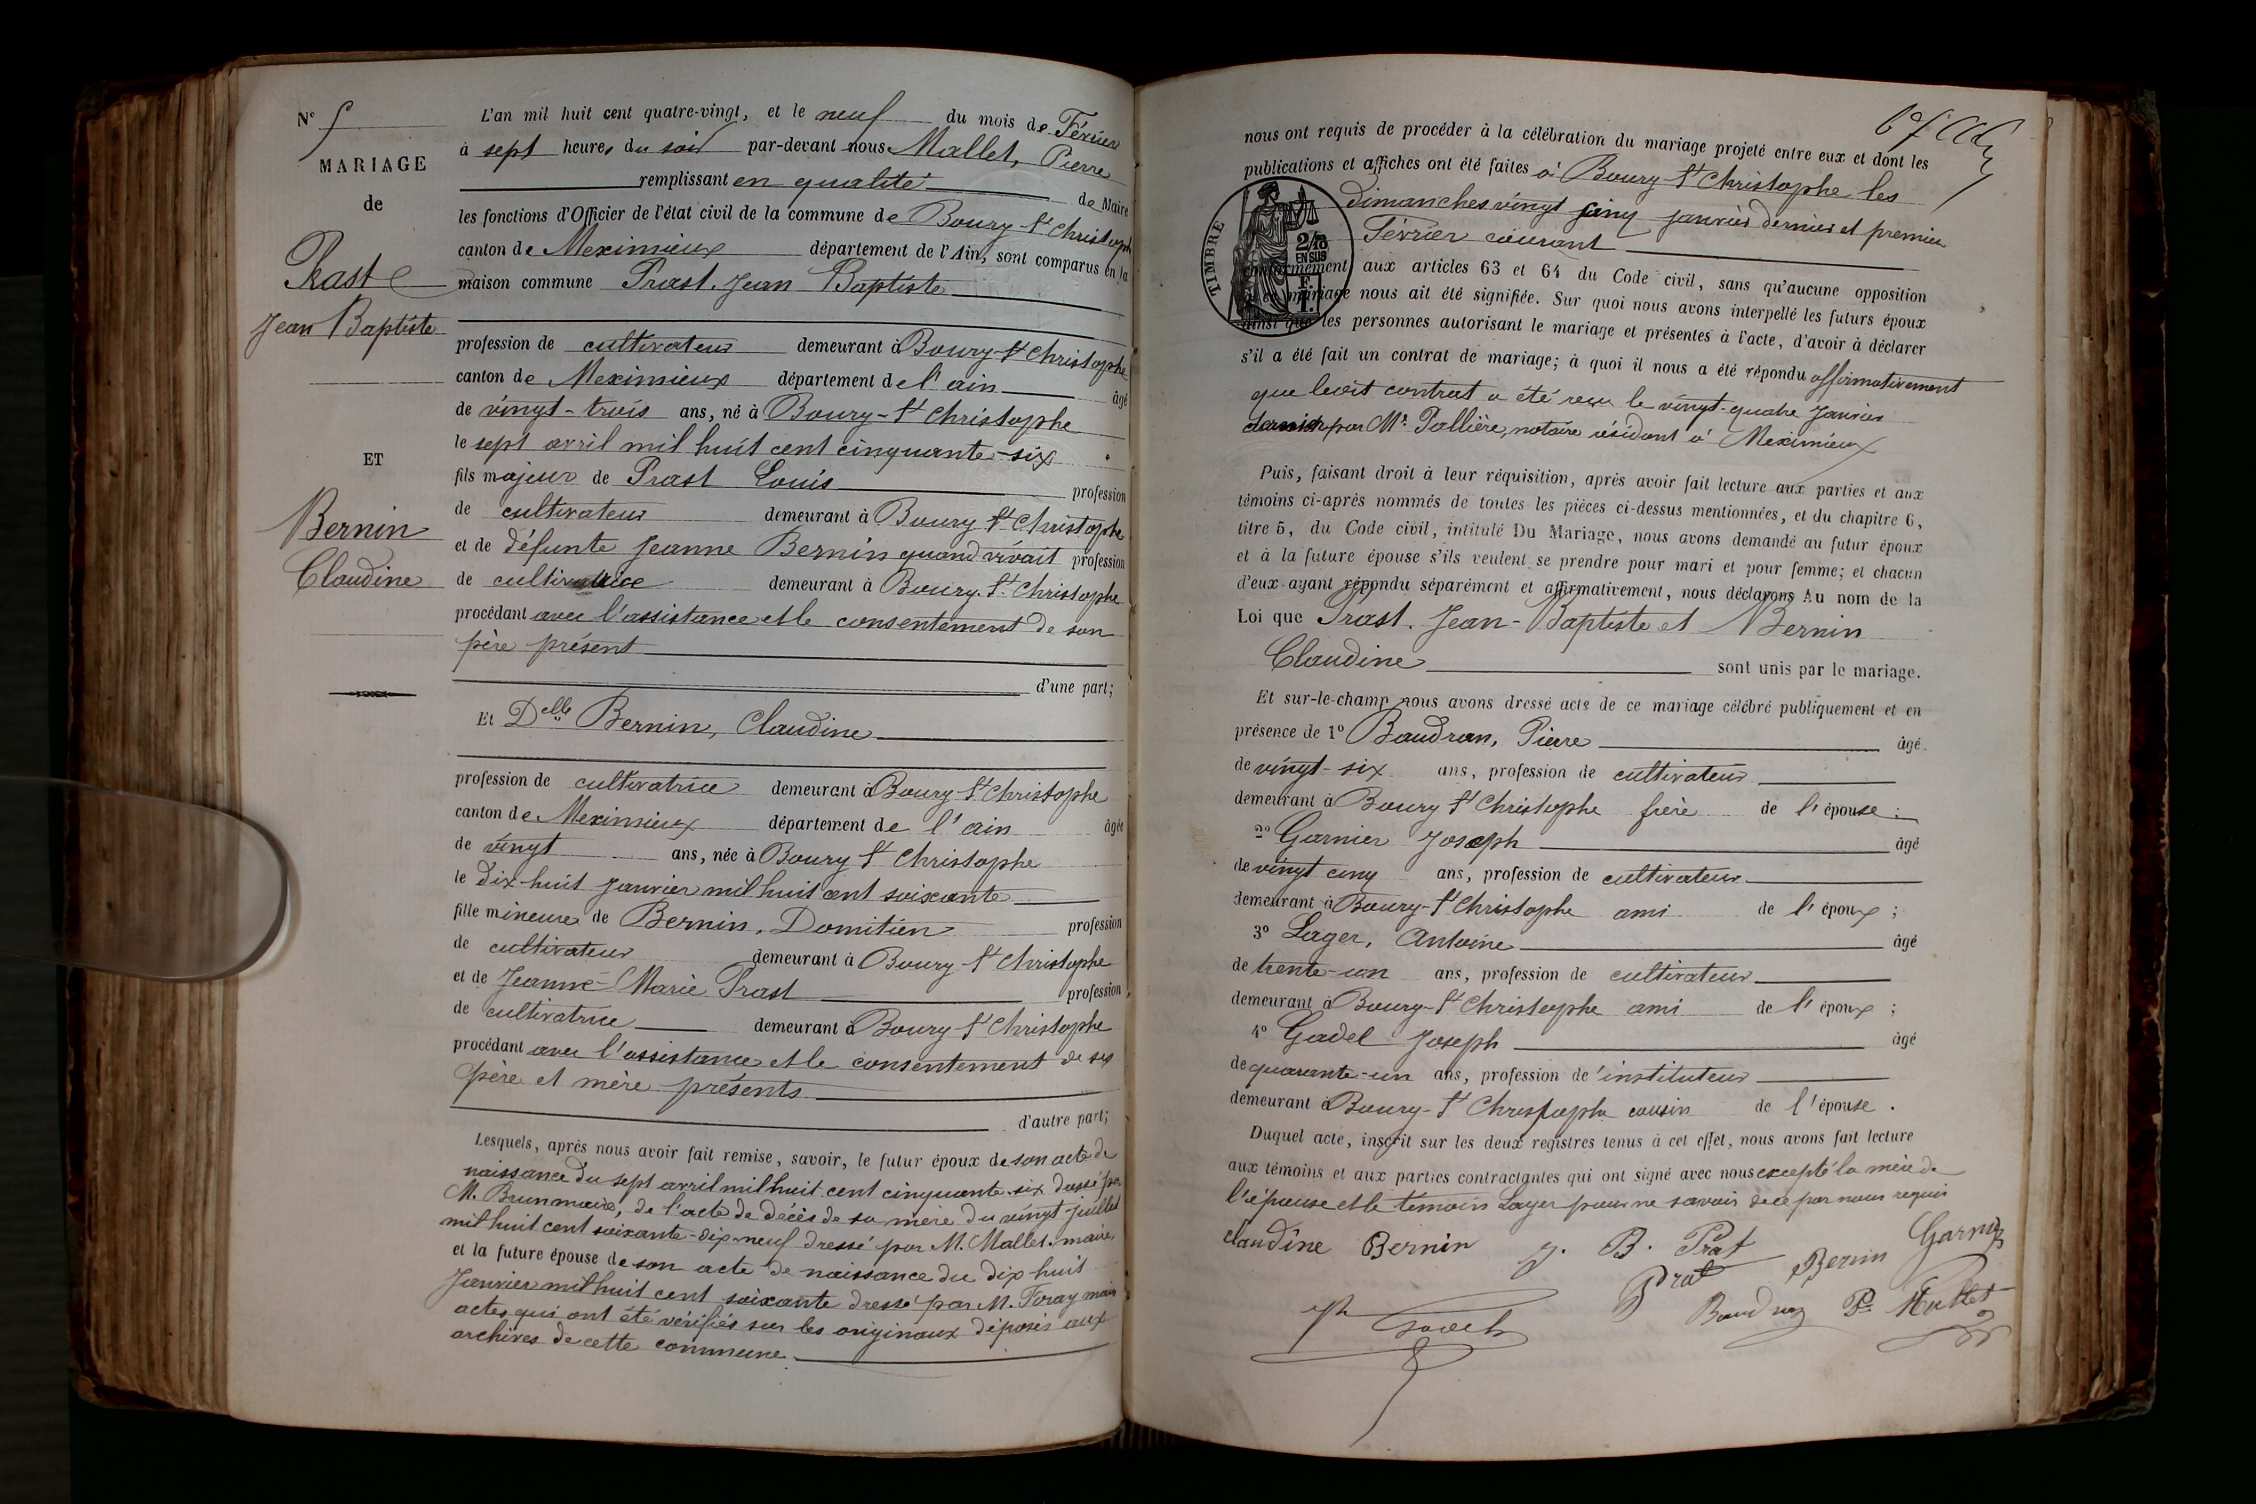 N° 5
MARIAGE
de
Prast
Jean Baptiste
ET
Bernin
Claudine
L'an mil huit cent quatre-vingt, et le neuf du mois de Février
à sept heures du soir par-devant nous Mallet, Pierre
remplissant en qualité de Maire
les fonctions d'Officier de l'état civil de la commune de Bourg St Christophe
canton de Meximieux département de l'Ain, sont comparus en la
maison commune Prast. Jean Baptiste
profession de cultivateur demeurant à Bourg-St Christophe
canton de Meximieux département de l'ain âgé
de vingt-trois ans, né à Bourg-St Christophe
le sept avril mil huit cent cinquante-six
fils majeur de Prast Louis profession
de cultivateur demeurant à Bourg St Christophe
et de défunte Jeanne Bernin quand vivait profession
de cultivatrice demeurant à Bourg. St Christophe
procédant avec l'assistance et le consentement de son
père présent
d'une part;
Et Delle Bernin, Claudine
profession de cultivatrice demeurant à Bourg St Christophe
canton de Meximieux département de l'ain âgée
de vingt ans, née à Bourg St Christophe
le dix-huit Janvier mil huit cent soixante
fille mineure de Bernin, Domitien profession
de cultivateur demeurant à Bourg-St Christophe
et de Jeanne-Marie Prast profession
de cultivatrice demeurant à Bourg St Christophe
procédant avec l'assistance et le consentement de ses
père et mère présents
d'autre part;
Lesquels, après nous avoir fait remise, savoir, le futur époux de son acte de
naissance du sept avril mil huit cent cinquante-six dressé par
M. Brun maire, de l'acte de décès de sa mère du vingt-juillet
mil huit cent soixante-dix-neuf dressé par M. Mallet. maire,
et la future épouse de son acte de naissance du dix huit
Janvier mil huit cent soixante dressé par M. Foray maire
actes qui ont été vérifiés sur les originaux déposés aux
archives de cette commune
nous ont requis de procéder à la célébration du mariage projeté entre eux et dont les
publications et affiches ont été faites à Bourg-St Christophe les
dimanches vingt cinq janvier dernier et premier
Février courant
TIMBRE
2/10
EN SUS
conformément aux articles 63 et 64 du Code civil, sans qu'aucune opposition
mariage nous ait été signifiée. Sur quoi nous avons interpellé les futurs époux
ainsi que les personnes autorisant le mariage et présentes à l'acte, d'avoir à déclarer
s'il a été fait un contrat de mariage; à quoi il nous a été répondu affirmativement
que ledit contrat a été reçu le vingt-quatre Janvier
dernier par Me Pallière, notaire résidant à Meximieux
Puis, faisant droit à leur réquisition, après avoir fait lecture aux parties et aux
témoins ci-après nommés de toutes les pièces ci-dessus mentionnées, et du chapitre 6,
titre 5, du Code civil, intitulé Du Mariage, nous avons demandé au futur époux
et à la future épouse s'ils veulent se prendre pour mari et pour femme; et chacun
d'eux ayant répondu séparément et affirmativement, nous déclarons Au nom de la
Loi que Prast. Jean-Baptiste et Bernin
Claudine sont unis par le mariage.
Et sur-le-champ nous avons dressé acte de ce mariage célébré publiquement et en
présence de 1° Baudran, Pierre âgé
de vingt-six ans, profession de cultivateur
demeurant à Bourg St Christophe frère de l'épouse;
2° Garnier Joseph âgé
de vingt cinq ans, profession de cultivateur
demeurant à Bourg-St Christophe ami de l'époux;
3° Lager, Antoine âgé
de trente-un ans, profession de cultivateur
demeurant à Bourg-St Christophe ami de l'époux;
4° Gadel Joseph âgé
de quarante-un ans, profession de l'instituteur
demeurant à Bourg-St Christophe cousin de l'épouse.
Duquel acte, inscrit sur les deux registres tenus à cet effet, nous avons fait lecture
aux témoins et aux parties contractantes qui ont signé avec nous excepté la mère de
l'épouse et le témoin Lager pour ne savoir de ce par nous requis
claudine Bernin J. B. Prat Garnier
Prat Bernin
Baudran P. Mallet